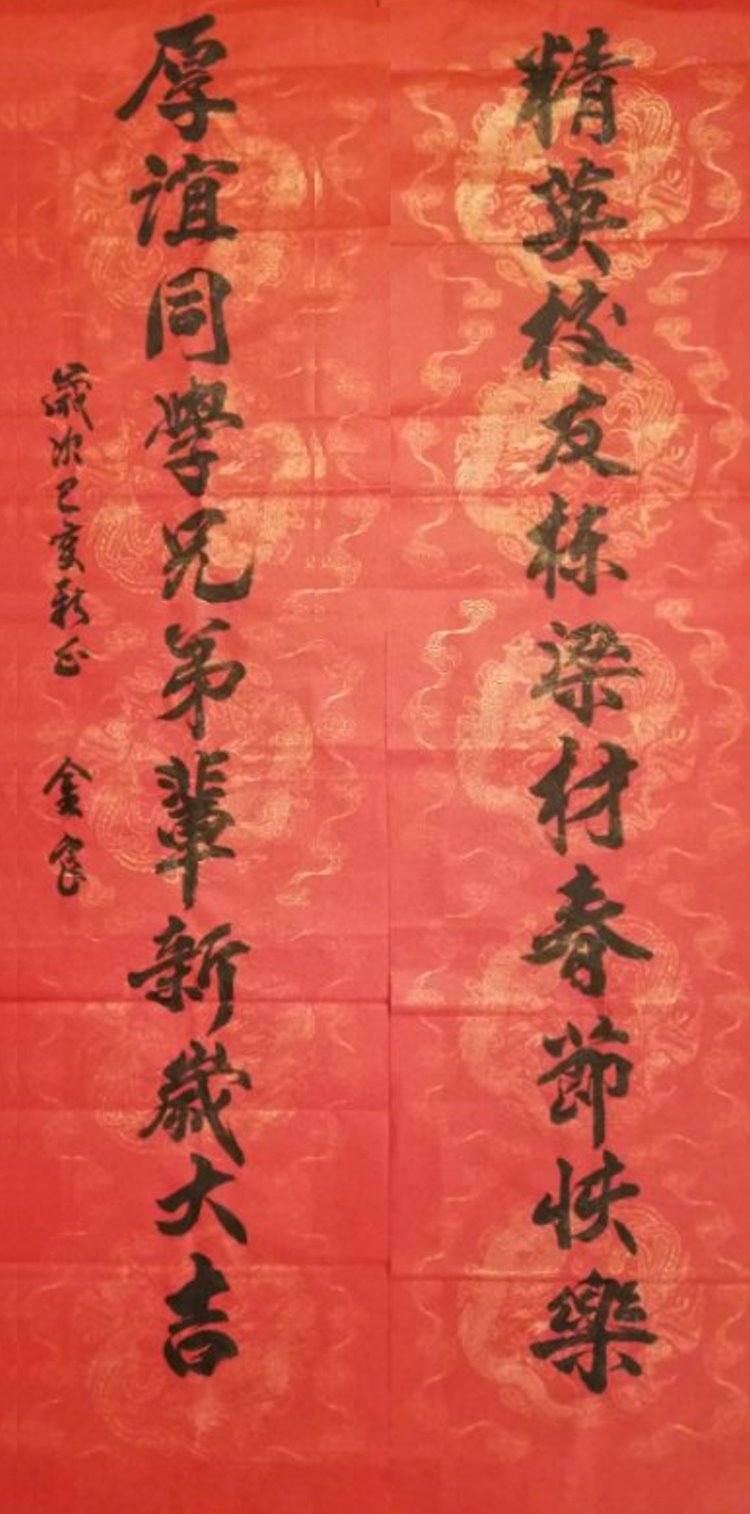 精英校友栋梁材春節快樂
厚谊同學兄弟輩新歲大吉
歲次己亥新正
金良